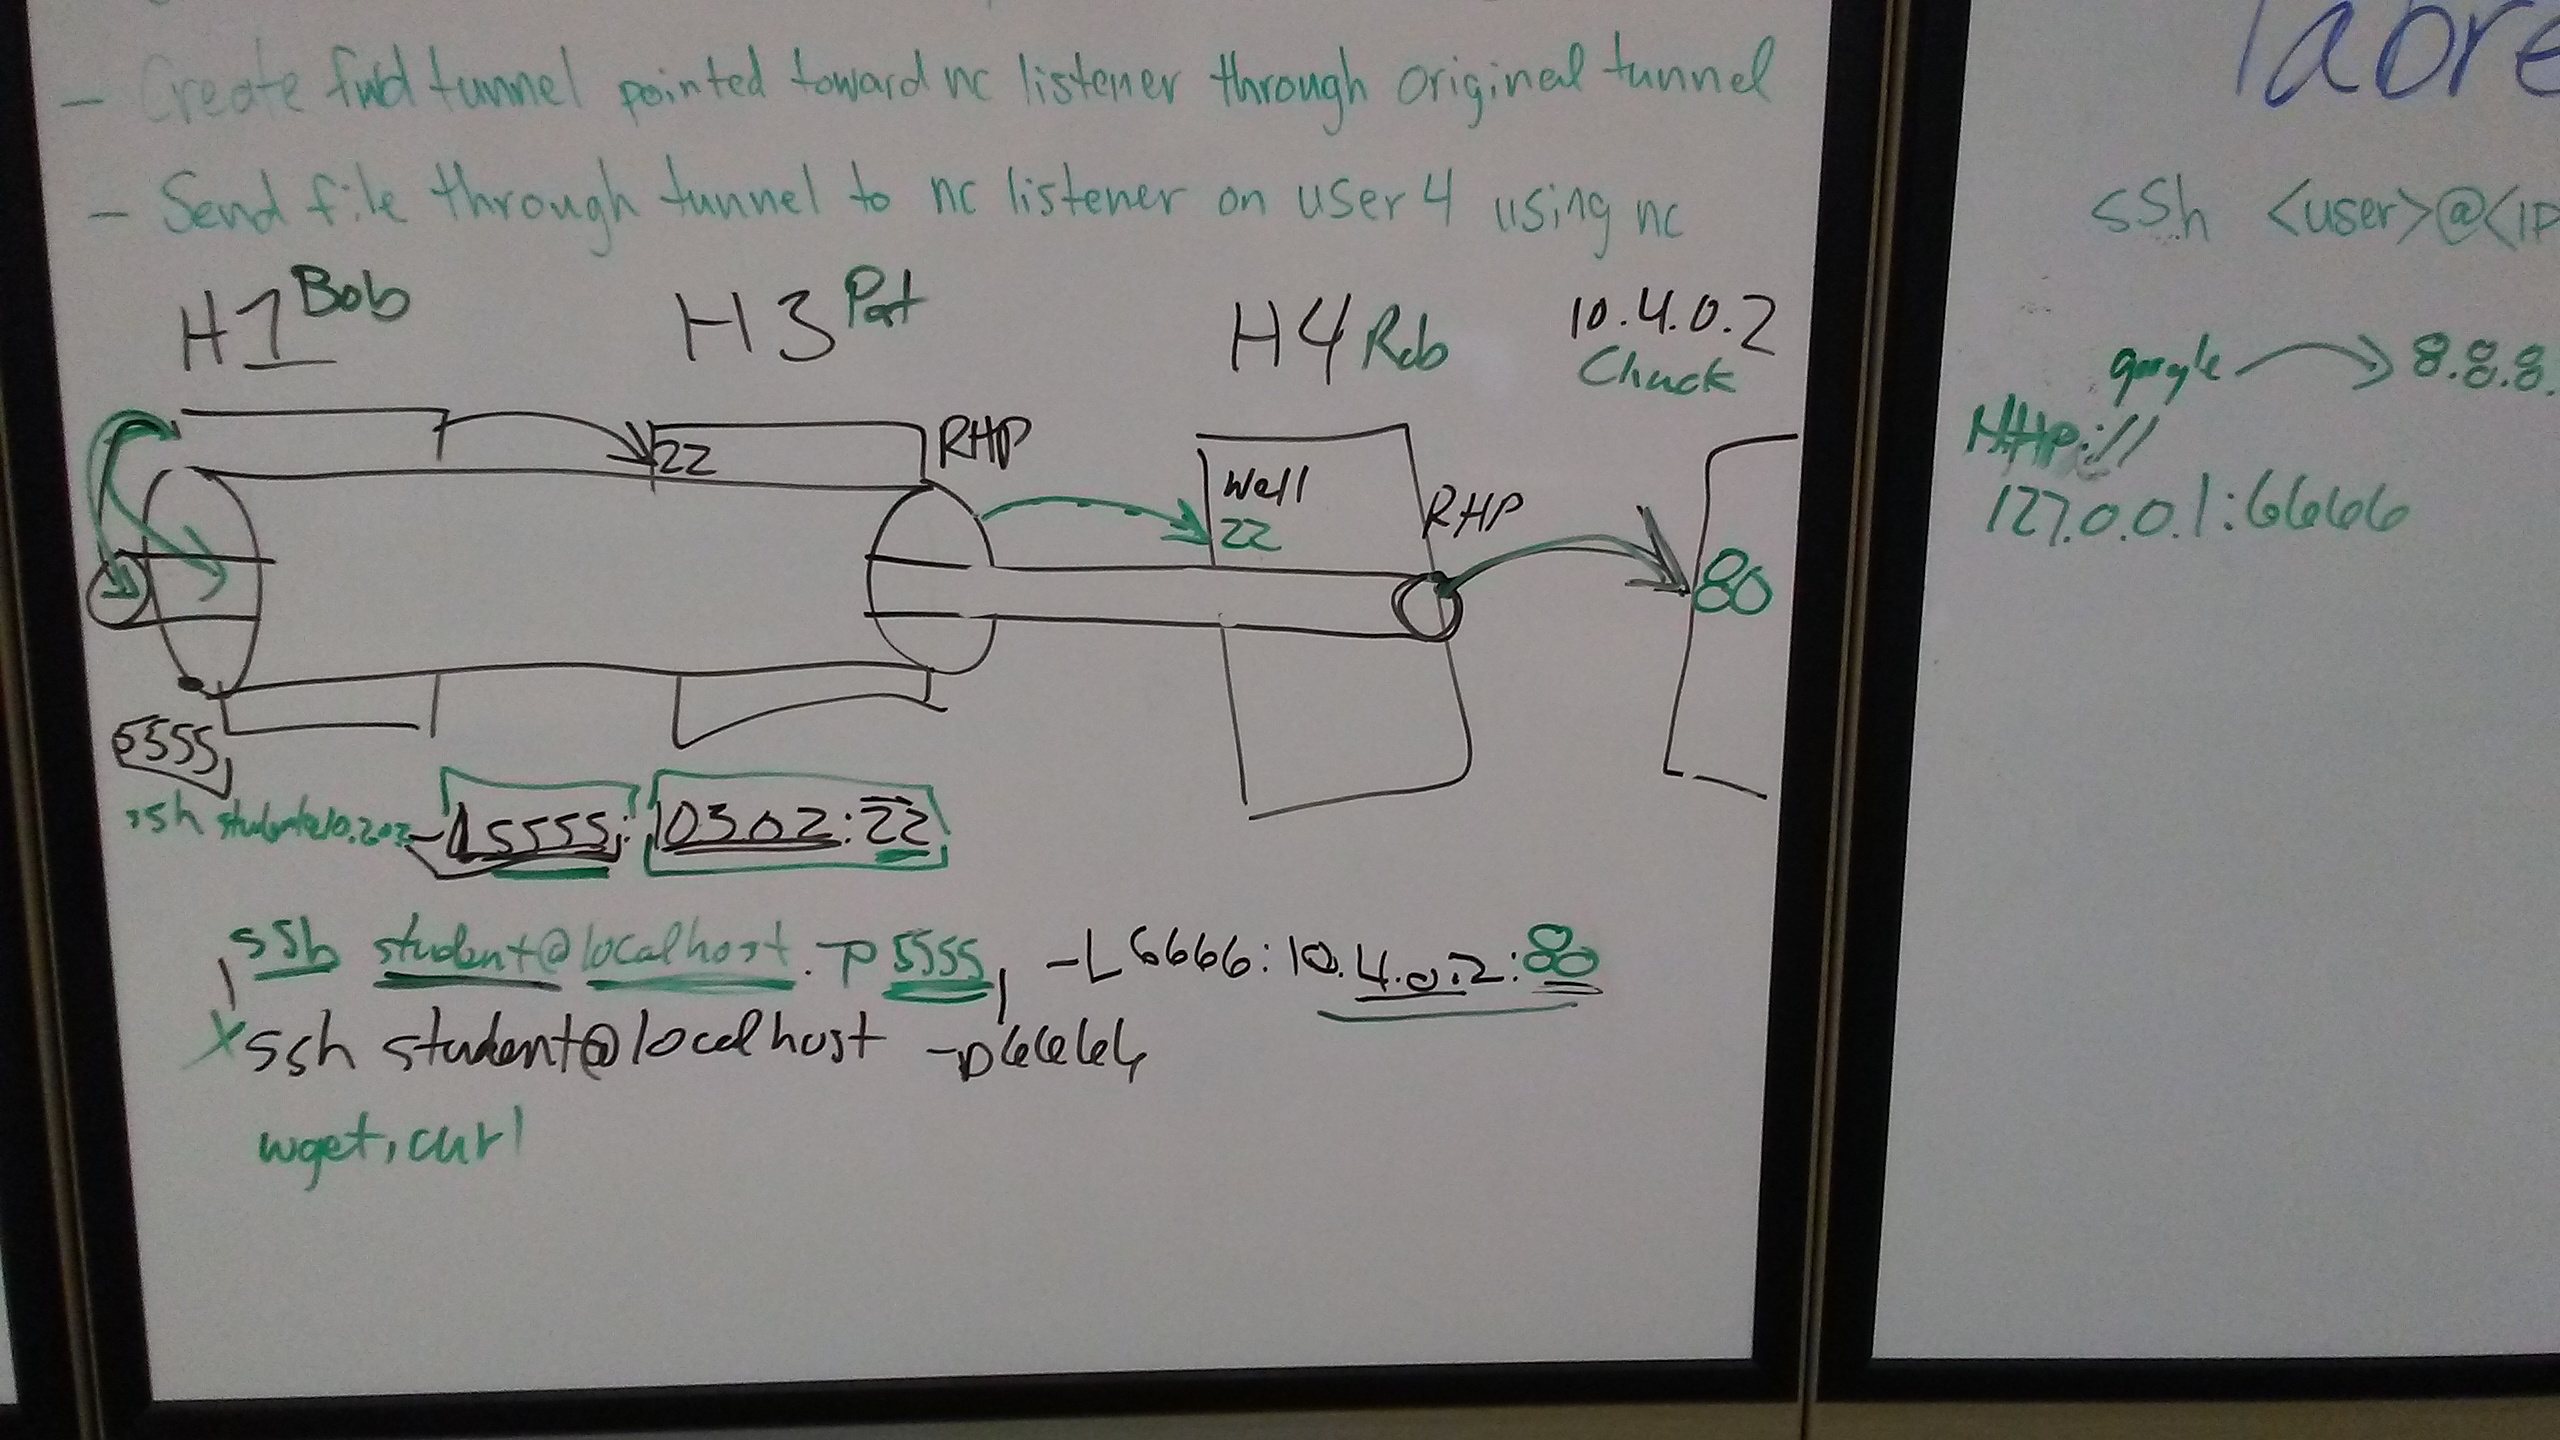 - Create fwd tunnel pointed toward nc listener through original tunnel
- Send file through tunnel to nc listener on user 4 using nc
H1 Bob
H3 Pat
H4 Rob
10.4.0.2
Chuck
22
RHP
Well
22
RHP
80
5555
ssh -L 5555: 10302:22
ssh student@localhost -p 5555 -L 6666:10.4.0.2:80
X ssh student@localhost -p 6666
wget, curl
ssh <user>@<IP
google → 8.8.8.
http://
127.0.0.1:6666